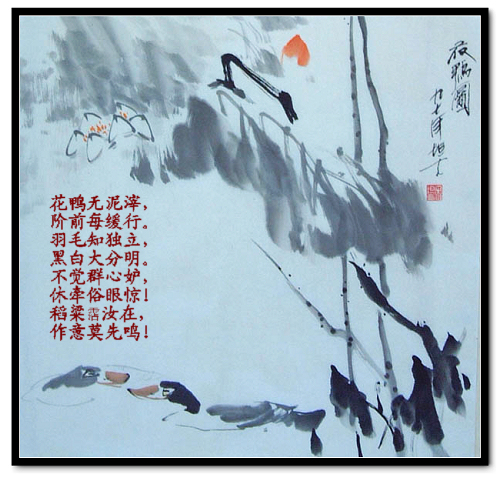 花鸭无泥滓，
阶前每缓行。
羽毛知独立，
黑白大分明。
不觉群心妒，
休牵俗眼惊！
稻粱霑汝在，
作意莫先鸣！